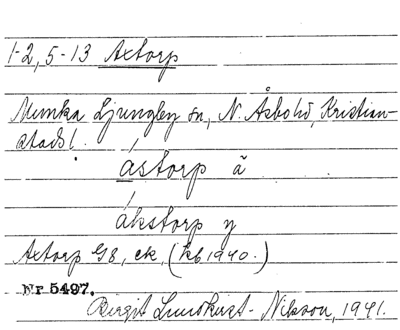 1-2, 5-13 Axtorp
Munka Ljungby sn, N. Åsbo hd, Kristian-
stads l.
ástorp ã
ákstorp y
Axtorp G8, ek, (kb 1940.)
Nr 5497.
Birgit Lundkvist-Nilsson, 1941.